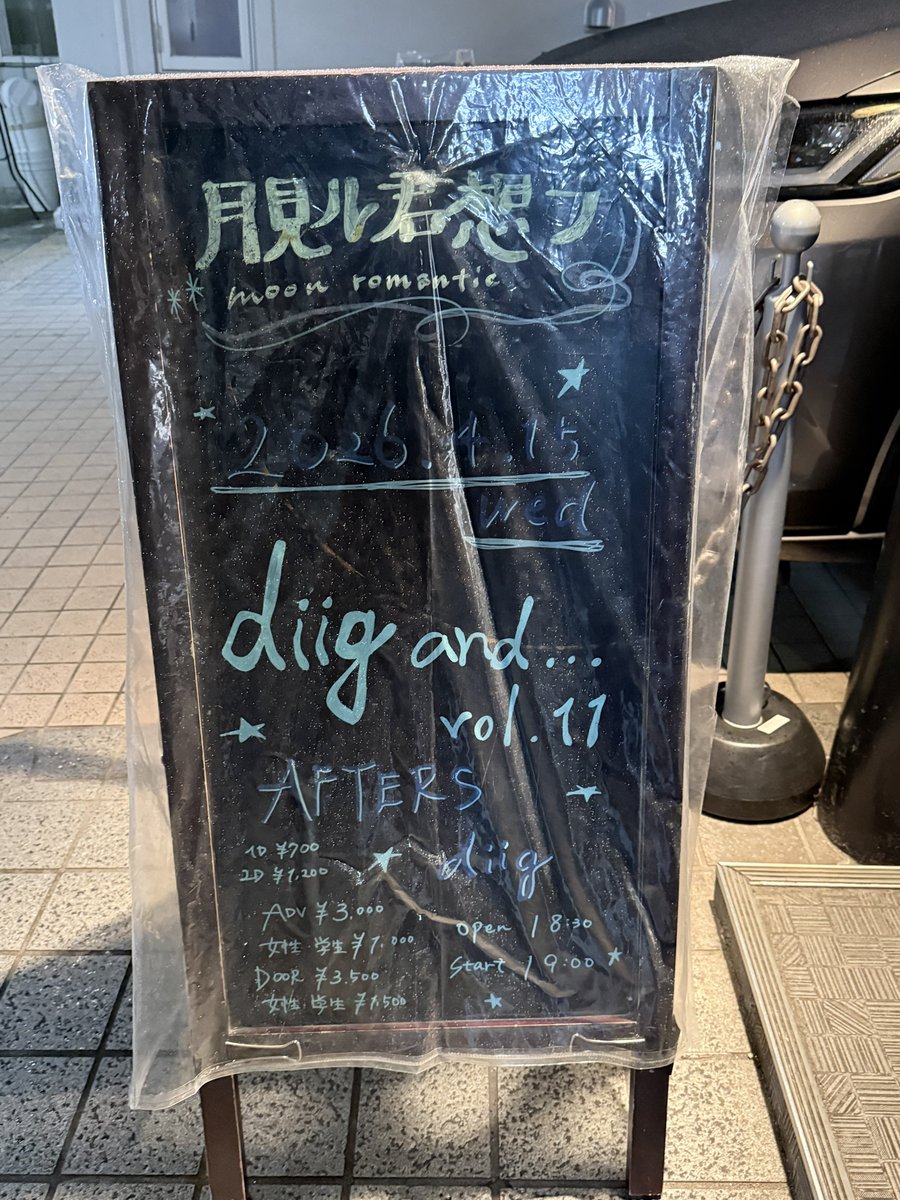 月見ル君想フ
moon romantic
2026.4.15
wed
diig and...
vol.11
AFTERS
diig
1D ¥700
2D ¥1,200
ADV ¥3.000
女性 学生 ¥1,000
DOOR ¥3.500
女性 学生 ¥1,500
open 18:30
start 19:00